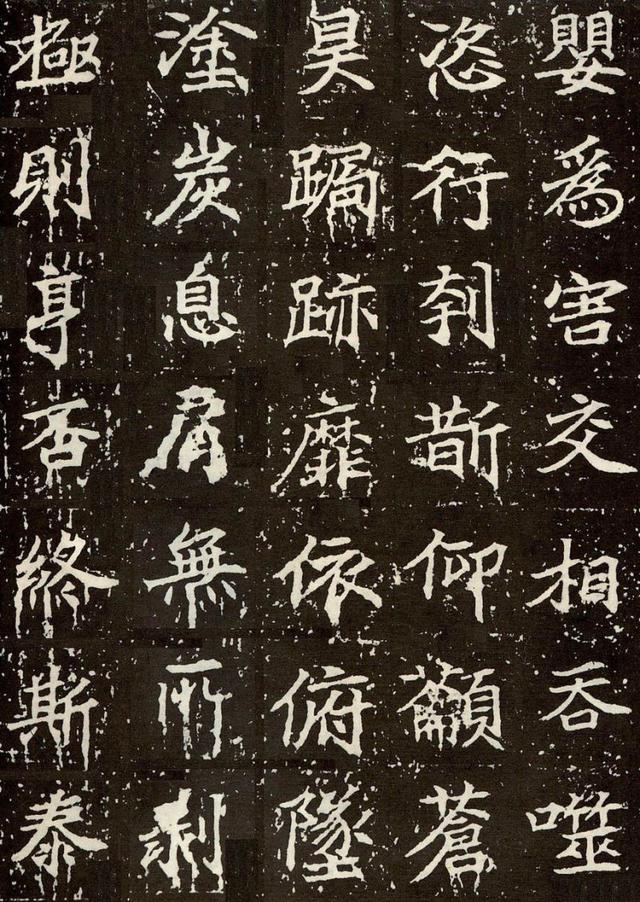 嬰爲害交相吞噬
恣行刳斮仰龥蒼
昊跼跡靡依俯墜
塗炭息肩無所剝
極則亨否終斯泰